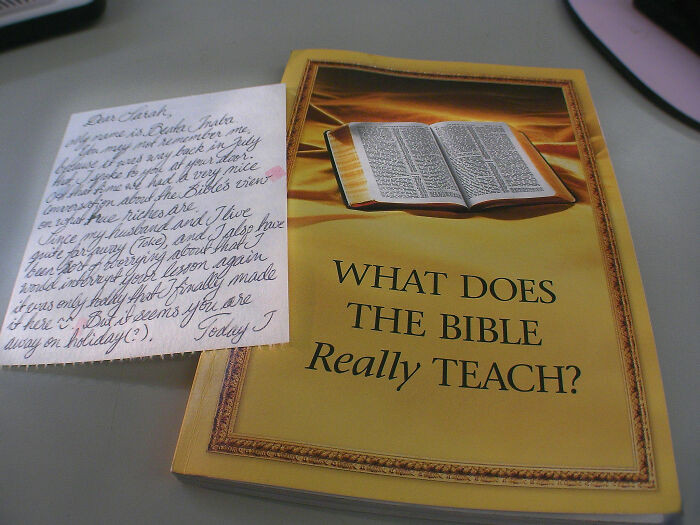 Dear Sarah,
My name is Beata Inaba
You may not remember me,
because it was way back in July
that I spoke to you at your door.
At that time we had a very nice
conversation about the Bible's view
on what true riches are.
Since my husband and I live
quite far away (Toke), and I also have
been sort of worrying about that I
would interrupt your lesson again
it was only today that I finally made
it here. But it seems you are
away on holiday(?). Today I
WHAT DOES
THE BIBLE
Really TEACH?